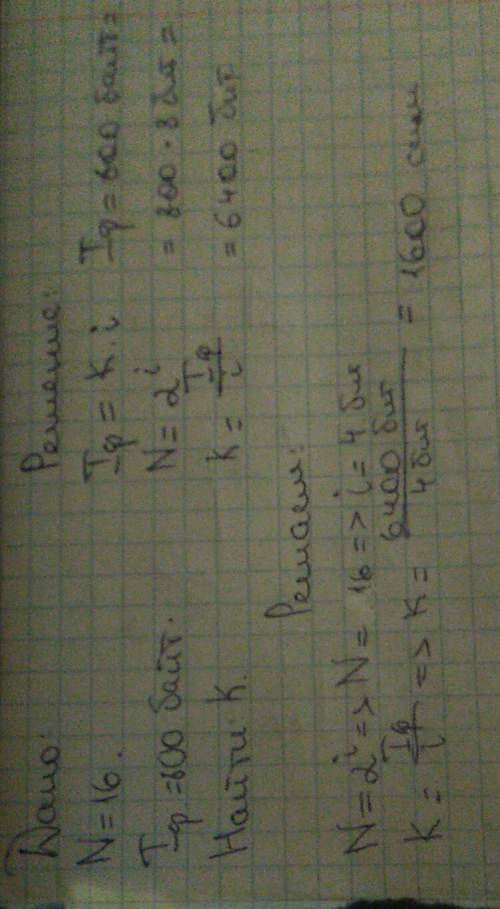 Дано:
N = 16.
I_ф = 800 байт.
Найти: K.
Решение:
I_ф = K · i
N = 2^i
K = I_ф / i
I_ф = 800 байт =
= 800 · 8 бит =
= 6400 бит
Решаем:
N = 2^i => N = 16 => i = 4 бит
K = I_ф / i => K = 6400 бит / 4 бит = 1600 симв